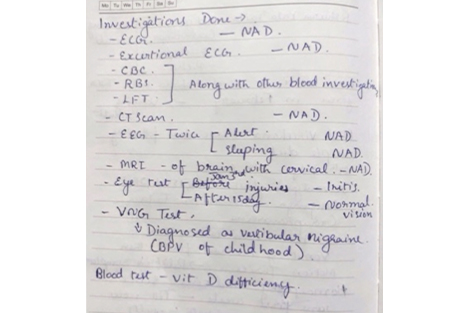 Mo Tu We Th Fr Sa Su
Investigations Done →
- ECG. — NAD.
- Excertional ECG. — NAD.
- CBC.
- RBS. Along with other blood investigation
- LFT.
- CT Scan. — NAD.
- EEG - Twice Alert. NAD
Sleeping. NAD.
- MRI - of brain with cervical. - NAD.
- Eye test injuries - Iritis.
- After 15 day. - Normal vision
- VNG Test.
↓ Diagnosed as vestibular migraine
(BPV of childhood)
Blood test - Vit D difficiency.